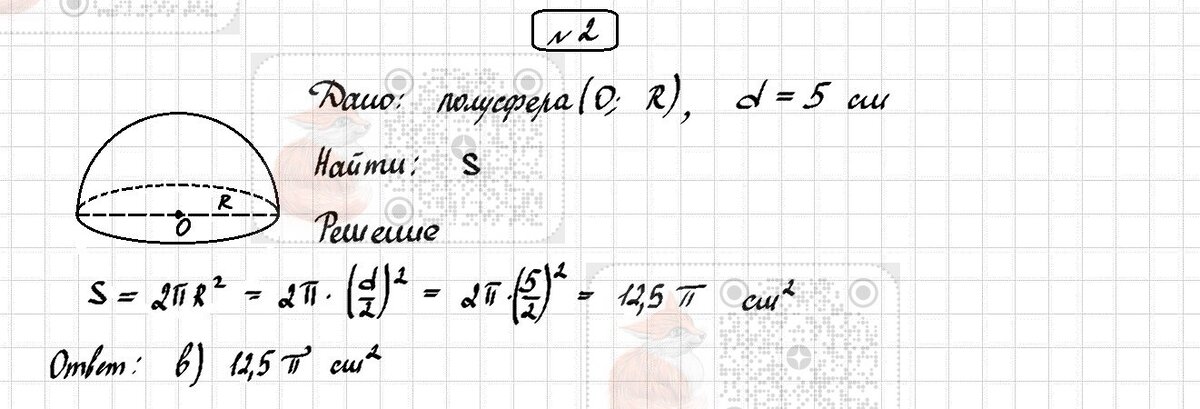 № 2
Дано: полусфера (O; R), d = 5 см
Найти: S
R
O
Решение
S = 2πR² = 2π · (d/2)² = 2π · (5/2)² = 12,5 π см²
Ответ: в) 12,5 π см²